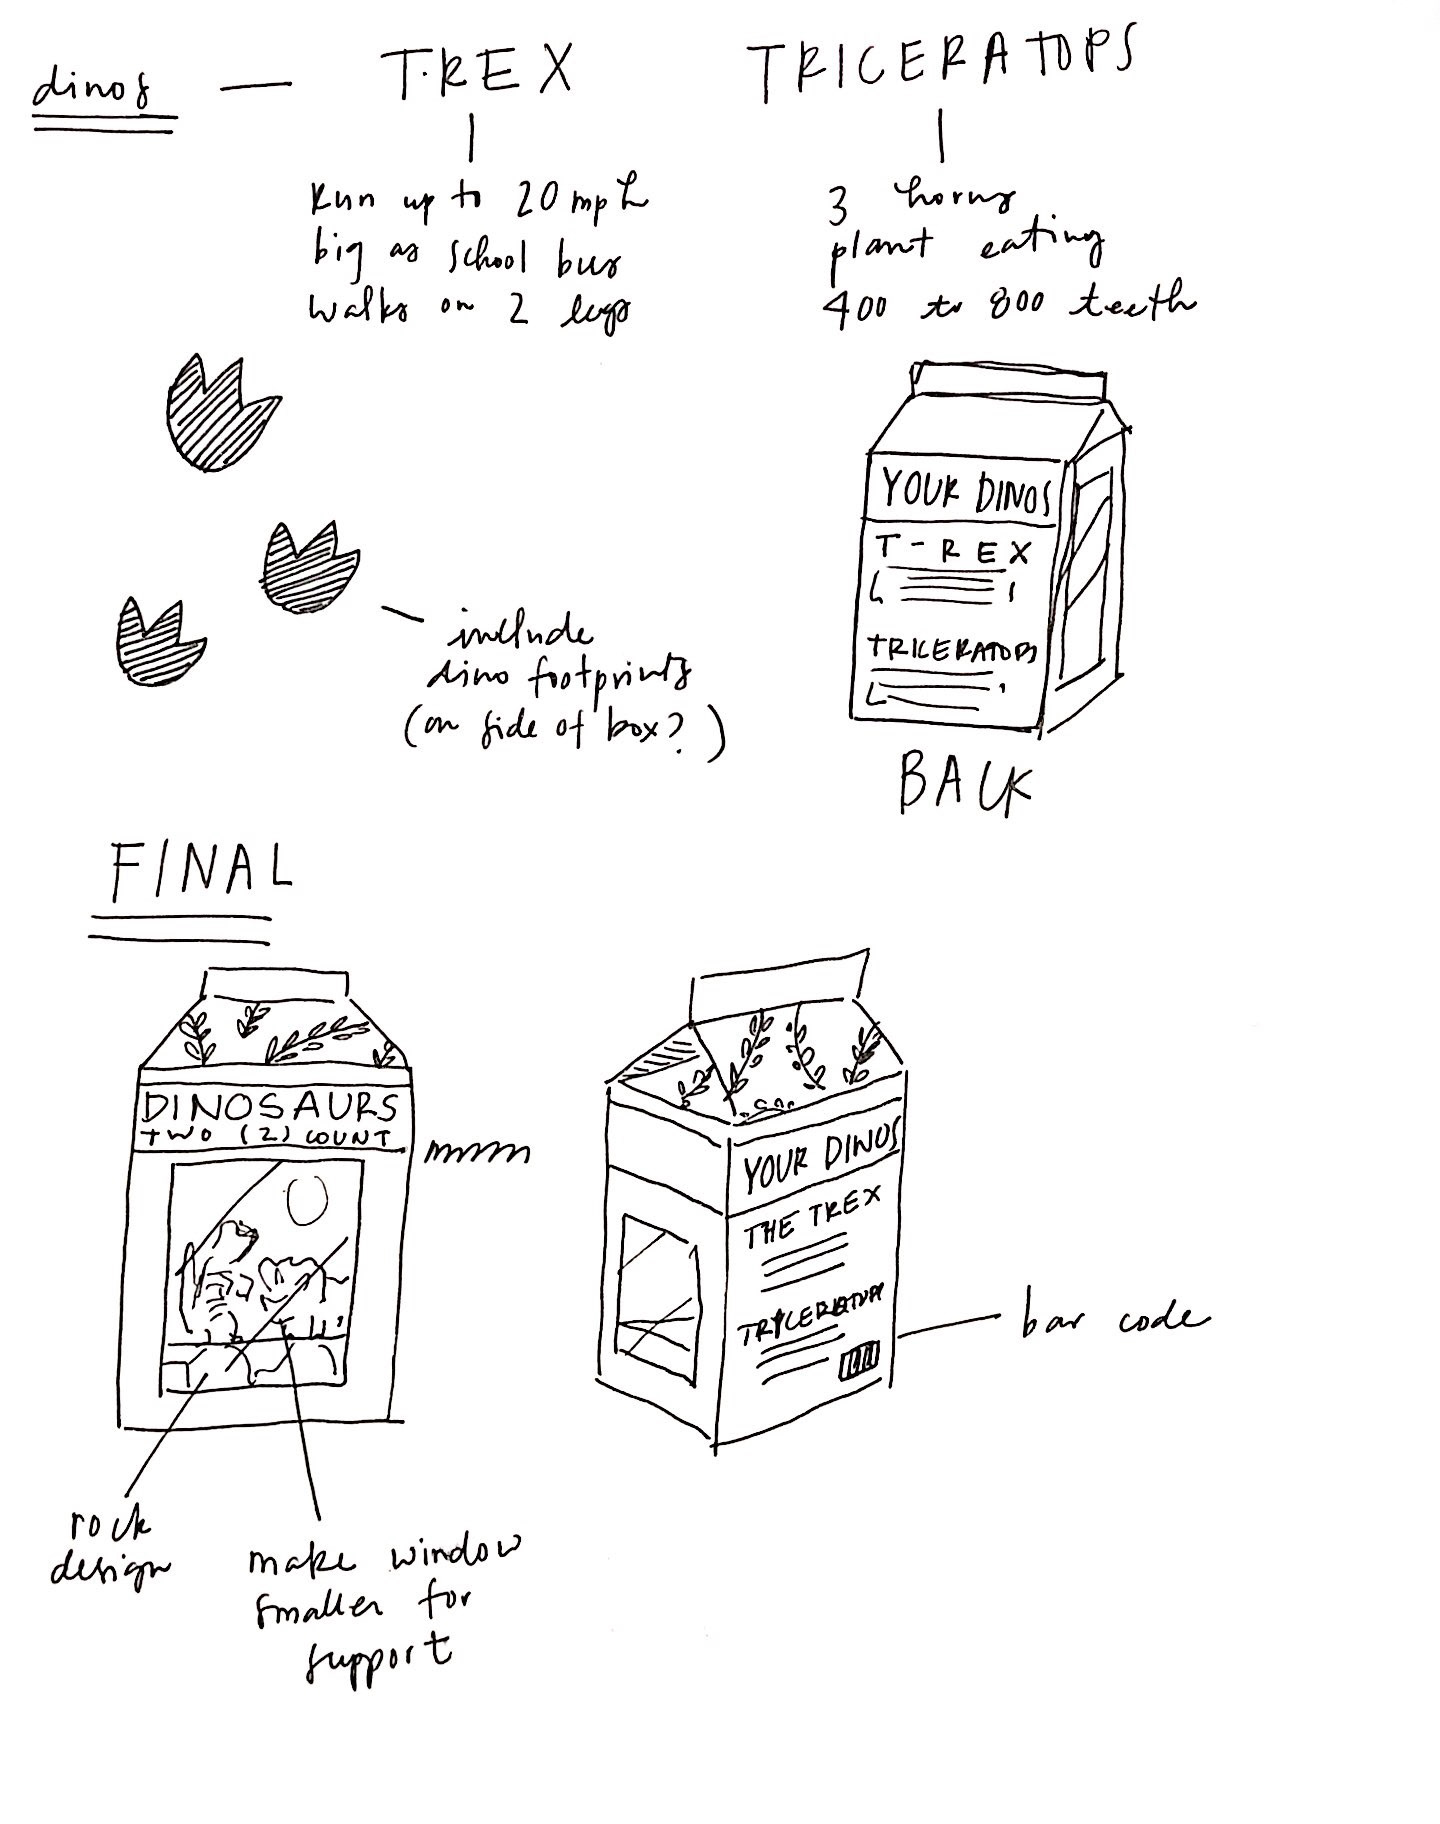 dinos
T-REX
TRICERATOPS
Run up to 20 mph
big as school bus
walks on 2 legs
3 horns
plant eating
400 to 800 teeth
include
dino footprints
(on side of box?)
YOUR DINOS
T-REX
TRICERATOPS
BACK
FINAL
DINOSAURS
TWO (2) COUNT
rock
design
make window
smaller for
support
YOUR DINOS
THE TREX
TRICERATOPS
bar code